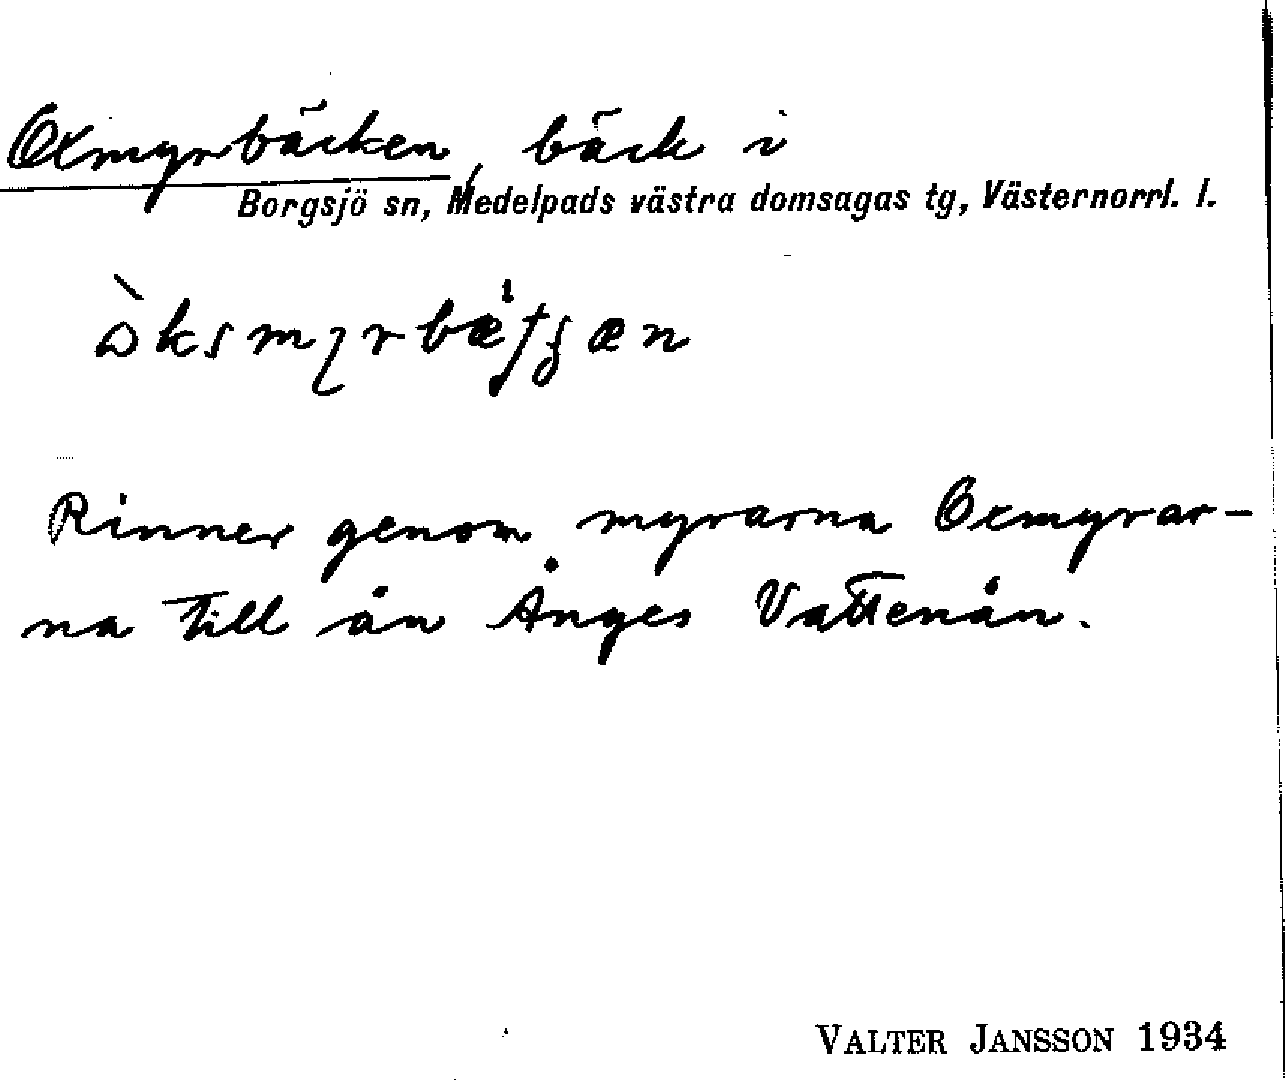 Oxmyrbäcken, bäck i
Borgsjö sn, Medelpads västra domsagas tg, Västernorrl. l.
Rinner genom myrarna Oxmyrar-
na till ån Ånges Vattenån.
VALTER JANSSON 1934